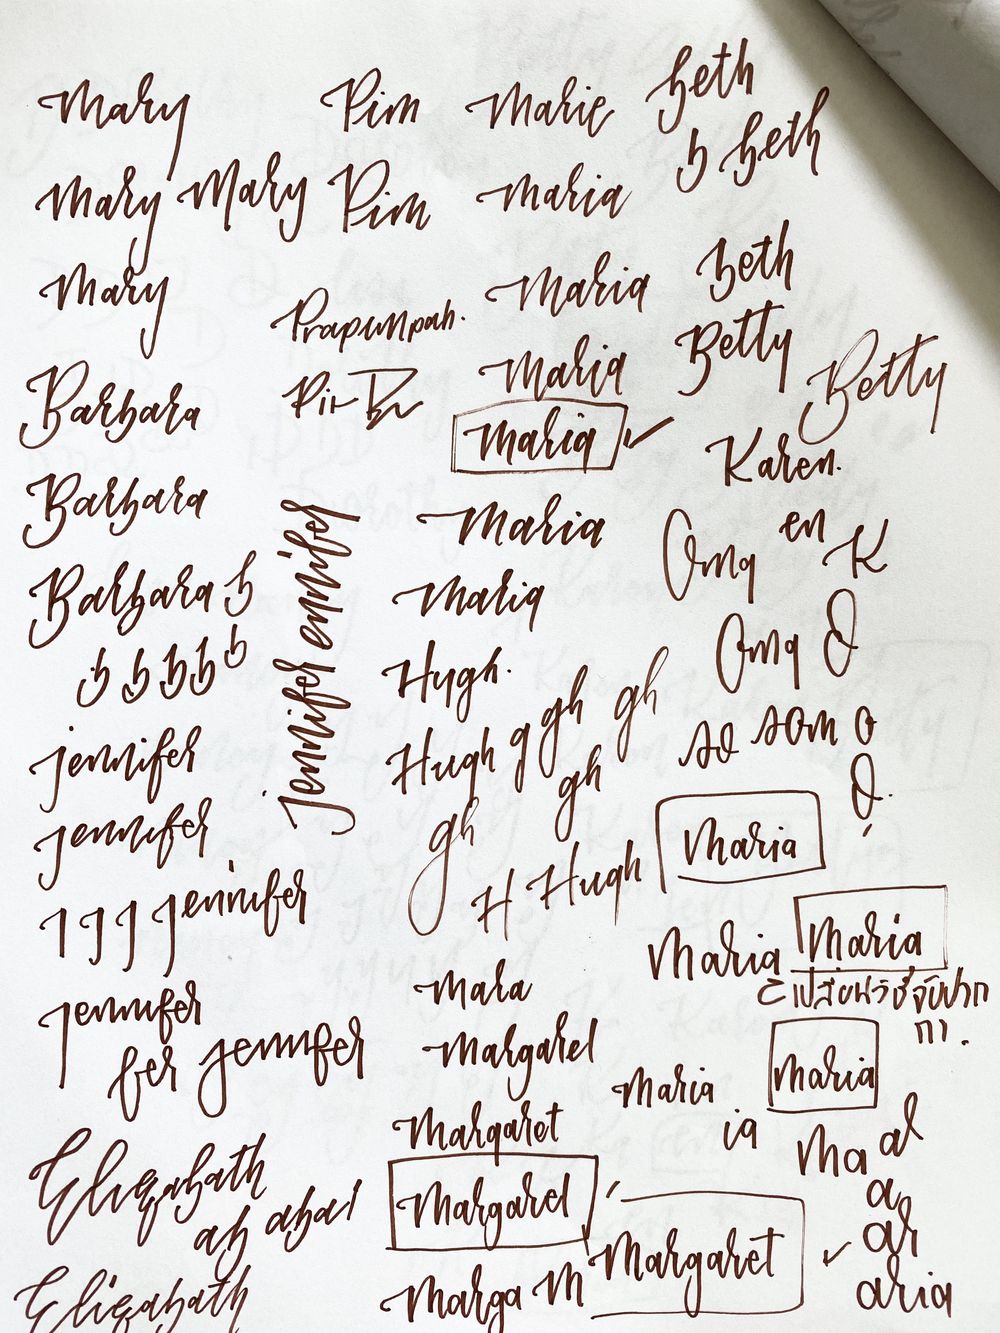 Mary Pim Marie Beth
b Beth
Mary Mary Pim Maria
Mary Maria Beth
Prapunpah.
Maria Betty Betty
Barbara
Maria
Karen.
Barbara Maria en K
Jennifer ennifer
Barbara b Maria Oma
b b b b b Hugh. Oma O
gh gh
jennifer Hugh g so som o
gh O.
jennifer gh Maria
H Hugh
J J J Jennifer Maria Maria
Mara
Jennifer
fer Jennifer Margaret Maria
Maria
Margaret ia Ma
Elizabath
ab Margaret a
Margaret ar
Elizabath Marga M aria